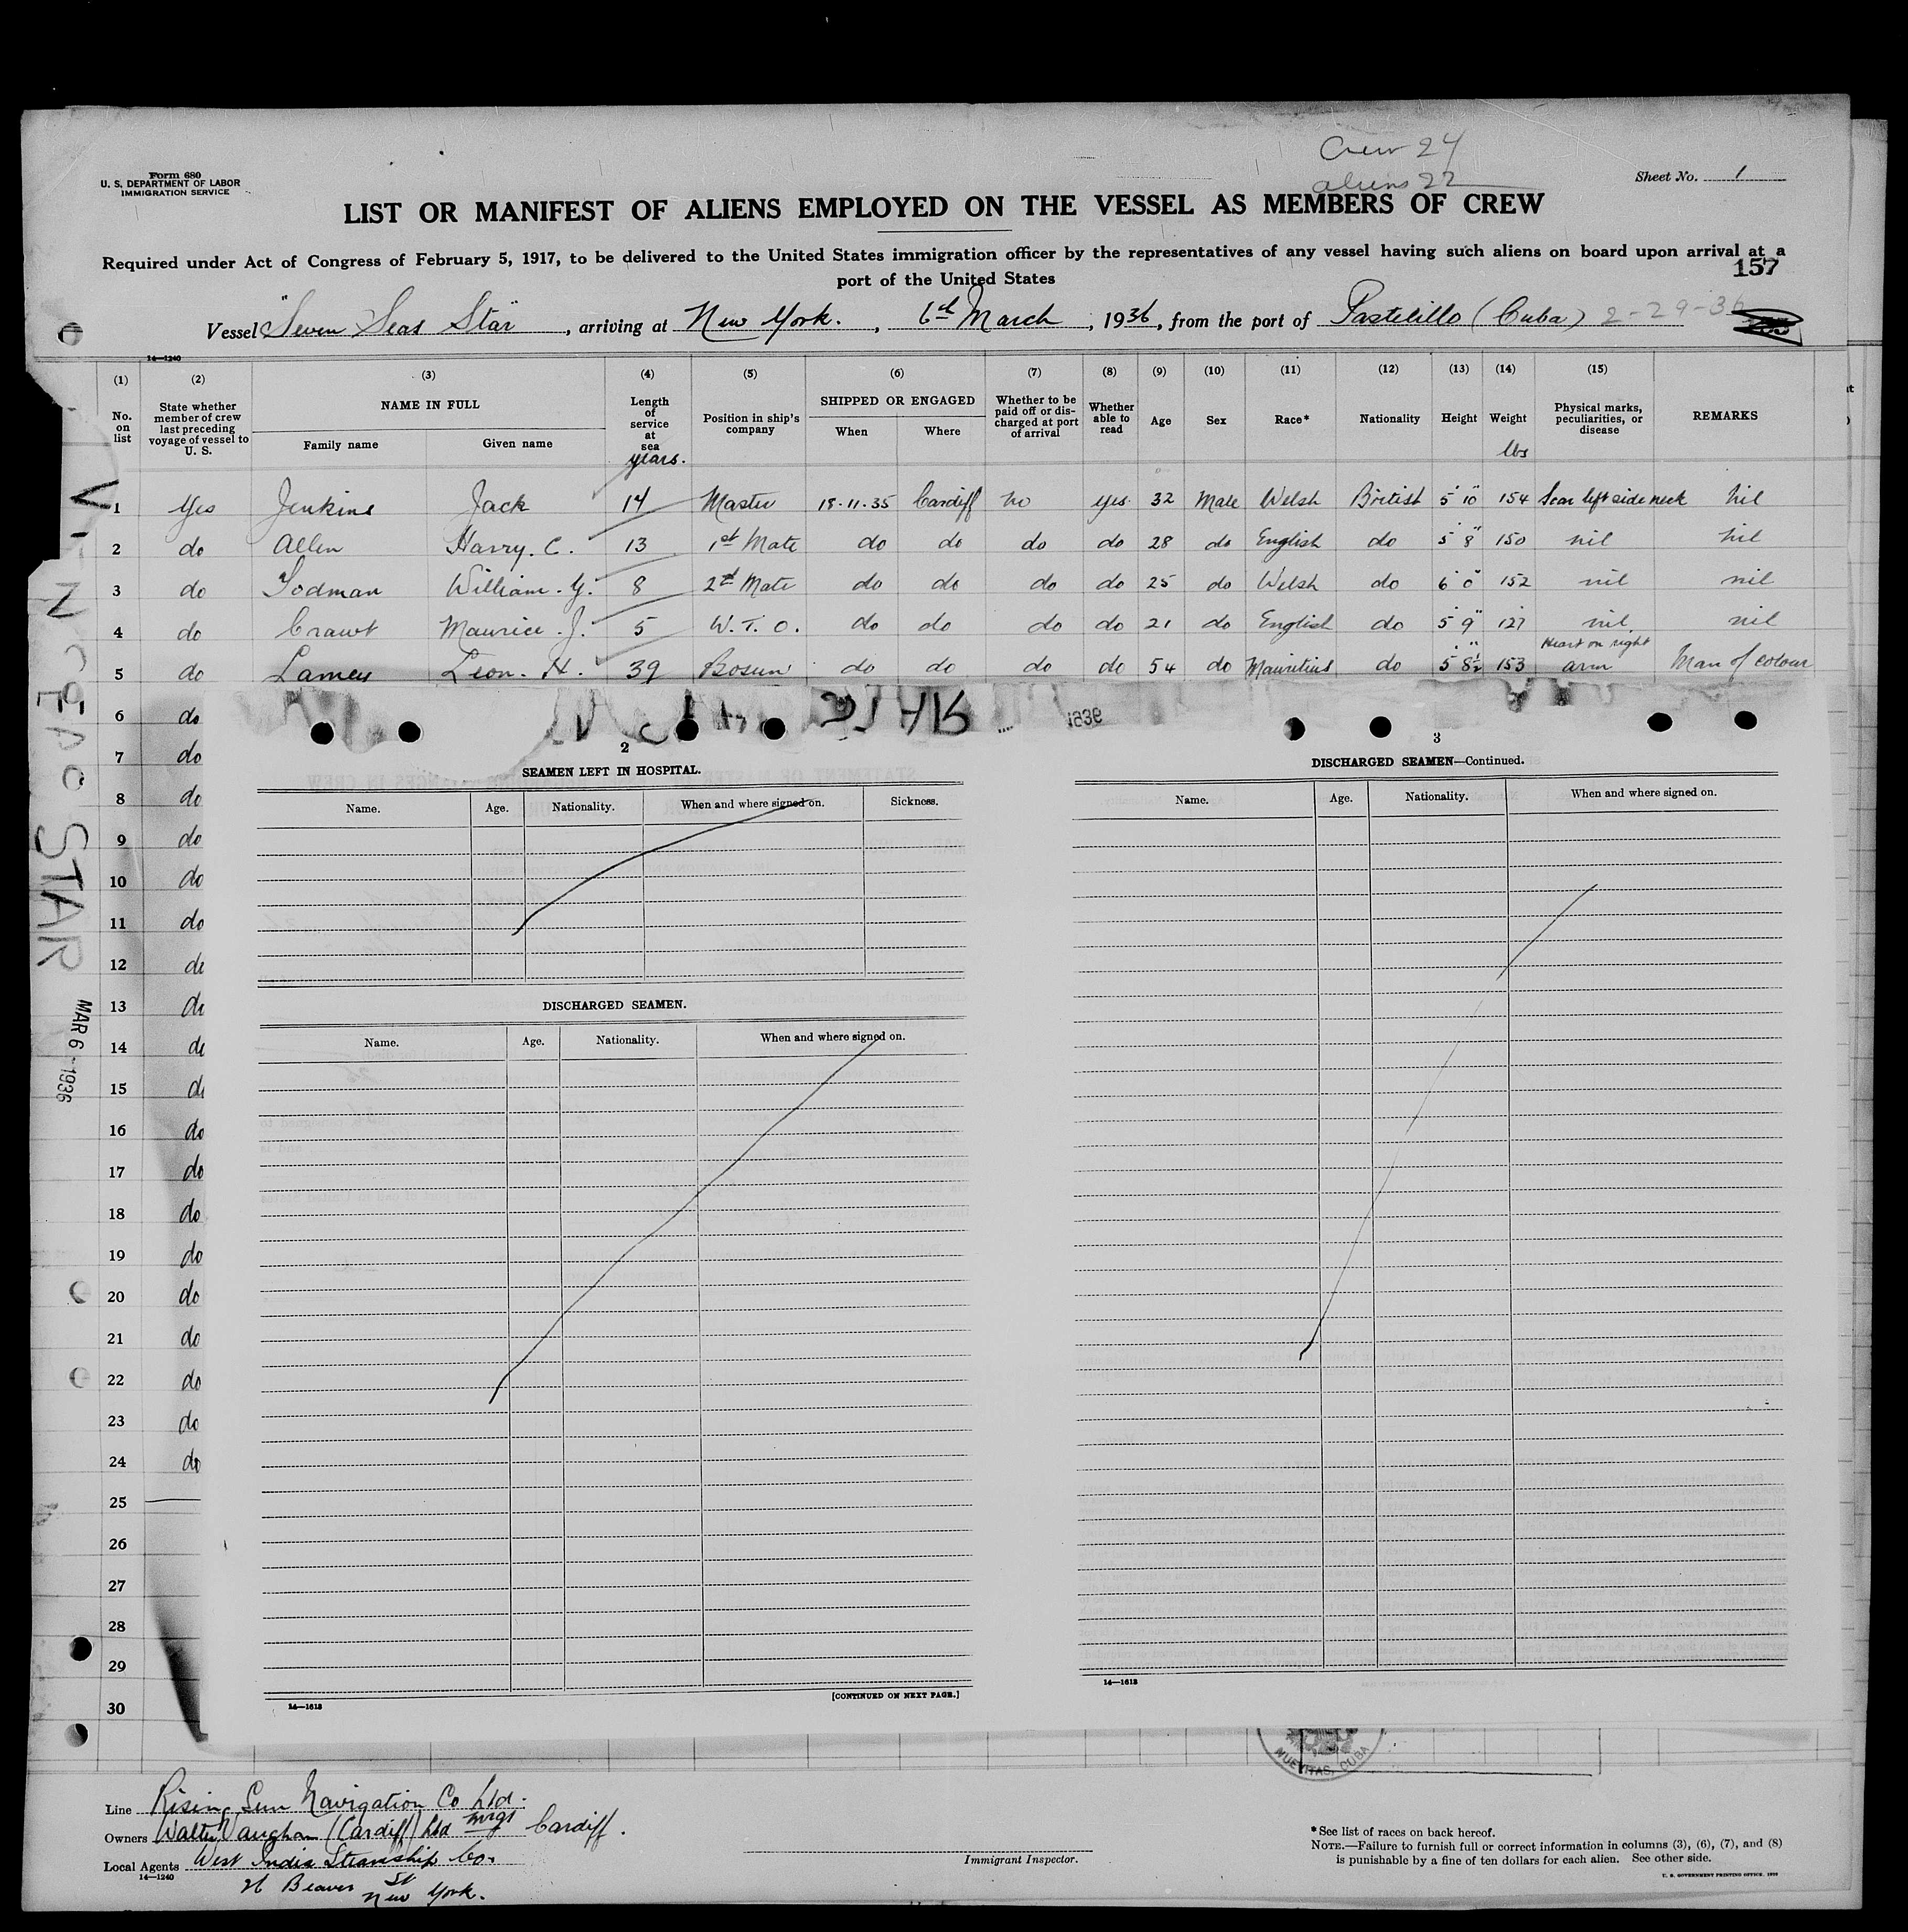 Crew 24
aliens 22
Form 680
U. S. DEPARTMENT OF LABOR
IMMIGRATION SERVICE
Sheet No. 1
LIST OR MANIFEST OF ALIENS EMPLOYED ON THE VESSEL AS MEMBERS OF CREW
Required under Act of Congress of February 5, 1917, to be delivered to the United States immigration officer by the representatives of any vessel having such aliens on board upon arrival at a
port of the United States
157
Vessel "Seven Seas Star", arriving at New York., 6th March, 1936, from the port of Pastelillo (Cuba) 2-29-36
14—1240
(1) (2) (3) (4) (5) (6) (7) (8) (9) (10) (11) (12) (13) (14) (15)
No. on list
State whether member of crew last preceding voyage of vessel to U. S.
NAME IN FULL
Family name Given name
Length of service at sea years.
Position in ship's company
SHIPPED OR ENGAGED
When Where
Whether to be paid off or discharged at port of arrival
Whether able to read
Age
Sex
Race*
Nationality
Height
Weight lbs
Physical marks, peculiarities, or disease
REMARKS
1 Yes Jenkins Jack 14 Master 18-11-35 Cardiff no yes. 32 Male Welsh British 5' 10" 154 Scar left side neck nil
2 do Allen Harry. C. 13 1st Mate do do do do 28 do English do 5' 8" 150 nil nil
3 do William. Y. 8 2d Mate do do do do 25 do Welsh do 6' 0" 152 nil nil
4 do Maurice. J. 5 W. T. O. do do do do 21 do English do 5' 9" 127 nil nil
5 do Lamey Leon. H. 39 Bosun do do do do 54 do Mauritius do 5' 8½" 153 Heart on right arm Man of colour
6 do
7 do
8 do
9 do
10 do
11 do
12 do
13 do
14 do
15 do
16 do
17 do
18 do
19 do
20 do
21 do
22 do
23 do
24 do
25
26
27
28
29
30
STAR
MAR 6 - 1936
1936
2
SEAMEN LEFT IN HOSPITAL.
Name. Age. Nationality. When and where signed on. Sickness.
DISCHARGED SEAMEN.
Name. Age. Nationality. When and where signed on.
14—1613
[CONTINUED ON NEXT PAGE.]
3
DISCHARGED SEAMEN—Continued.
Name. Age. Nationality. When and where signed on.
14—1613
NUEVITAS, CUBA
Line Rising Sun Navigation Co Ltd.
Owners Walter Vaughan (Cardiff) Ltd mrgs Cardiff.
Local Agents West India Steamship Co.
14—1240
26 Beaver St
New York.
Immigrant Inspector.
*See list of races on back hereof.
NOTE.—Failure to furnish full or correct information in columns (3), (6), (7), and (8)
is punishable by a fine of ten dollars for each alien. See other side.
U. S. GOVERNMENT PRINTING OFFICE.